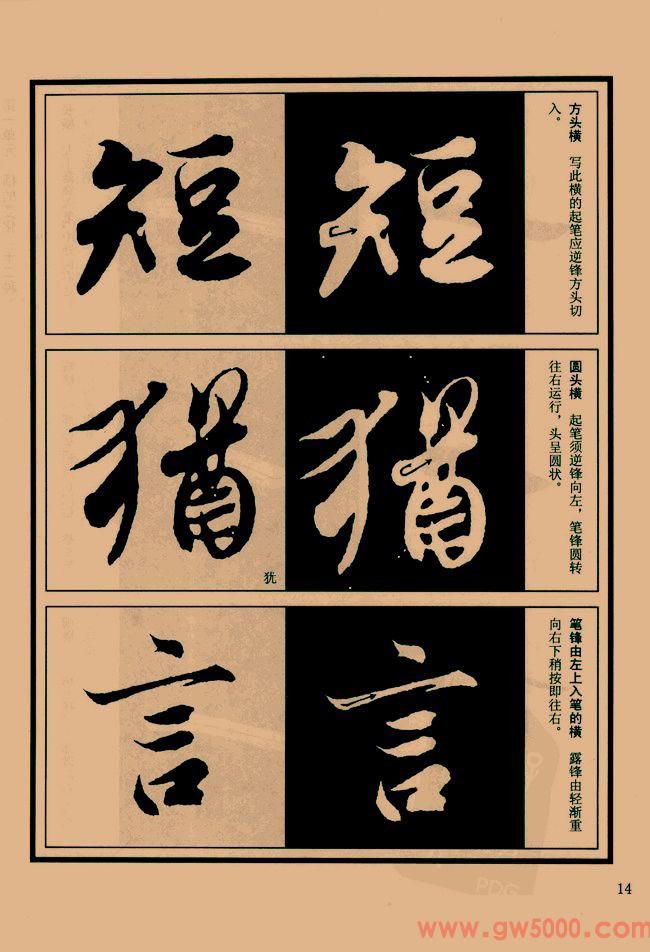 方头横　写此横的起笔应逆锋方头切
入。
短
短
圆头横　起笔须逆锋向左，笔锋圆转
往右运行，头呈圆状。
猶
猶
犹
笔锋由左上入笔的横　露锋由轻渐重
向右下稍按即往右。
言
言
14
PDG
www.gw5000.com